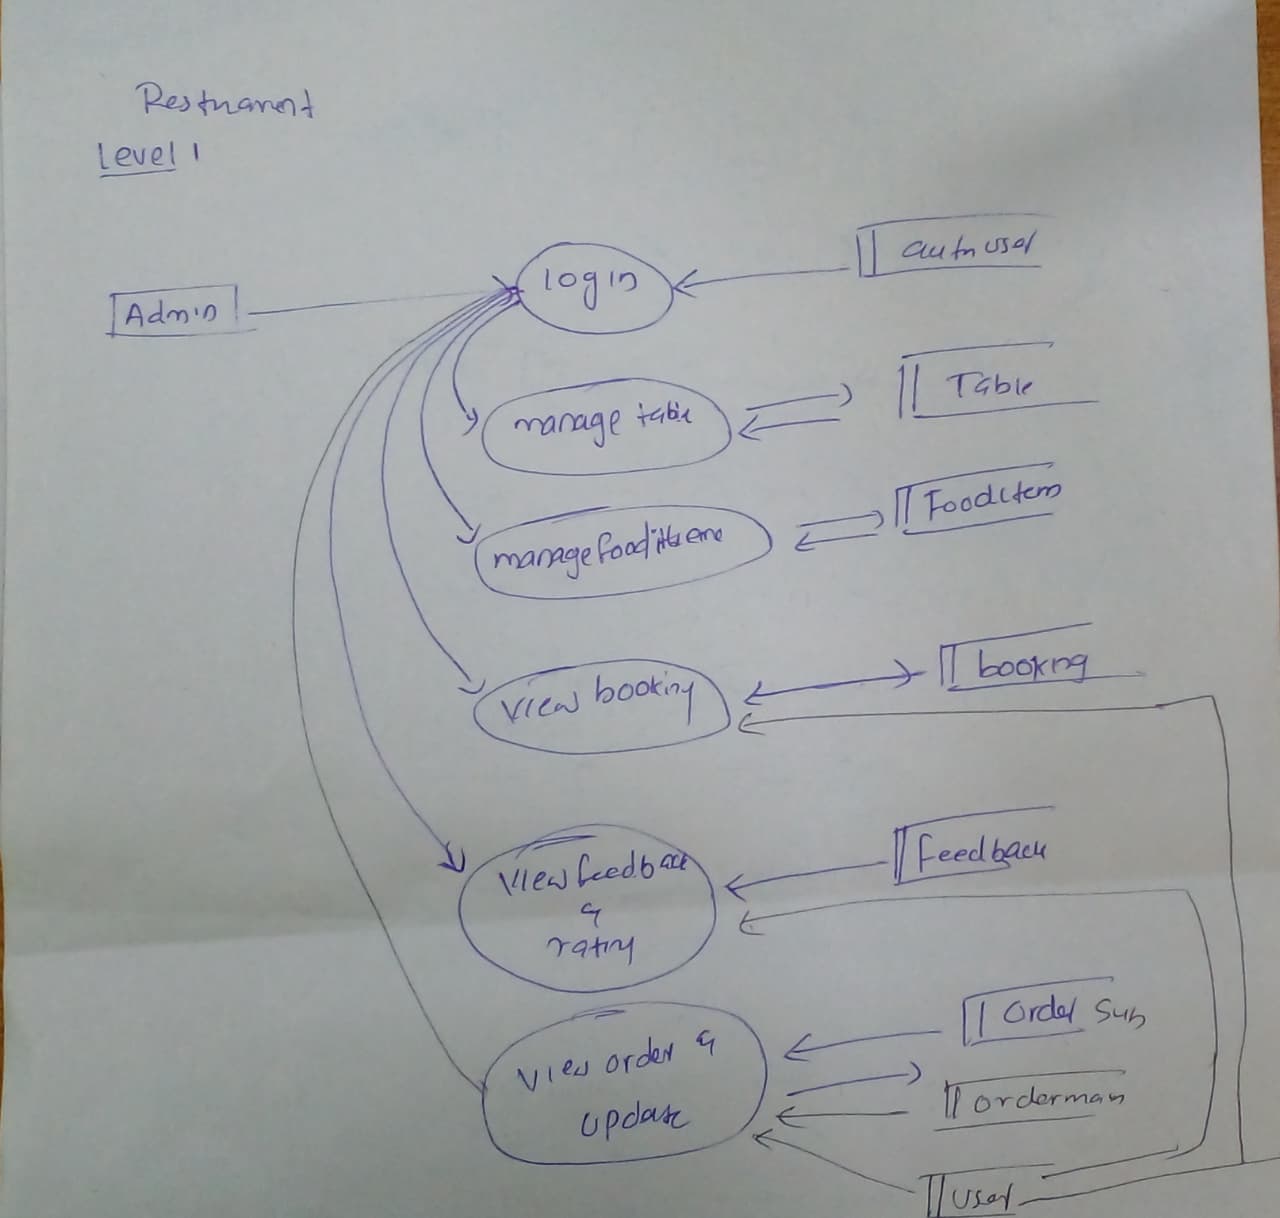 Restuarent
Level 1
Admin
login
autnuser
manage table
Table
manage food iteme
Fooditem
view booking
booking
view feedback
&
rating
Feedback
view order &
update
Order Sub
orderman
User